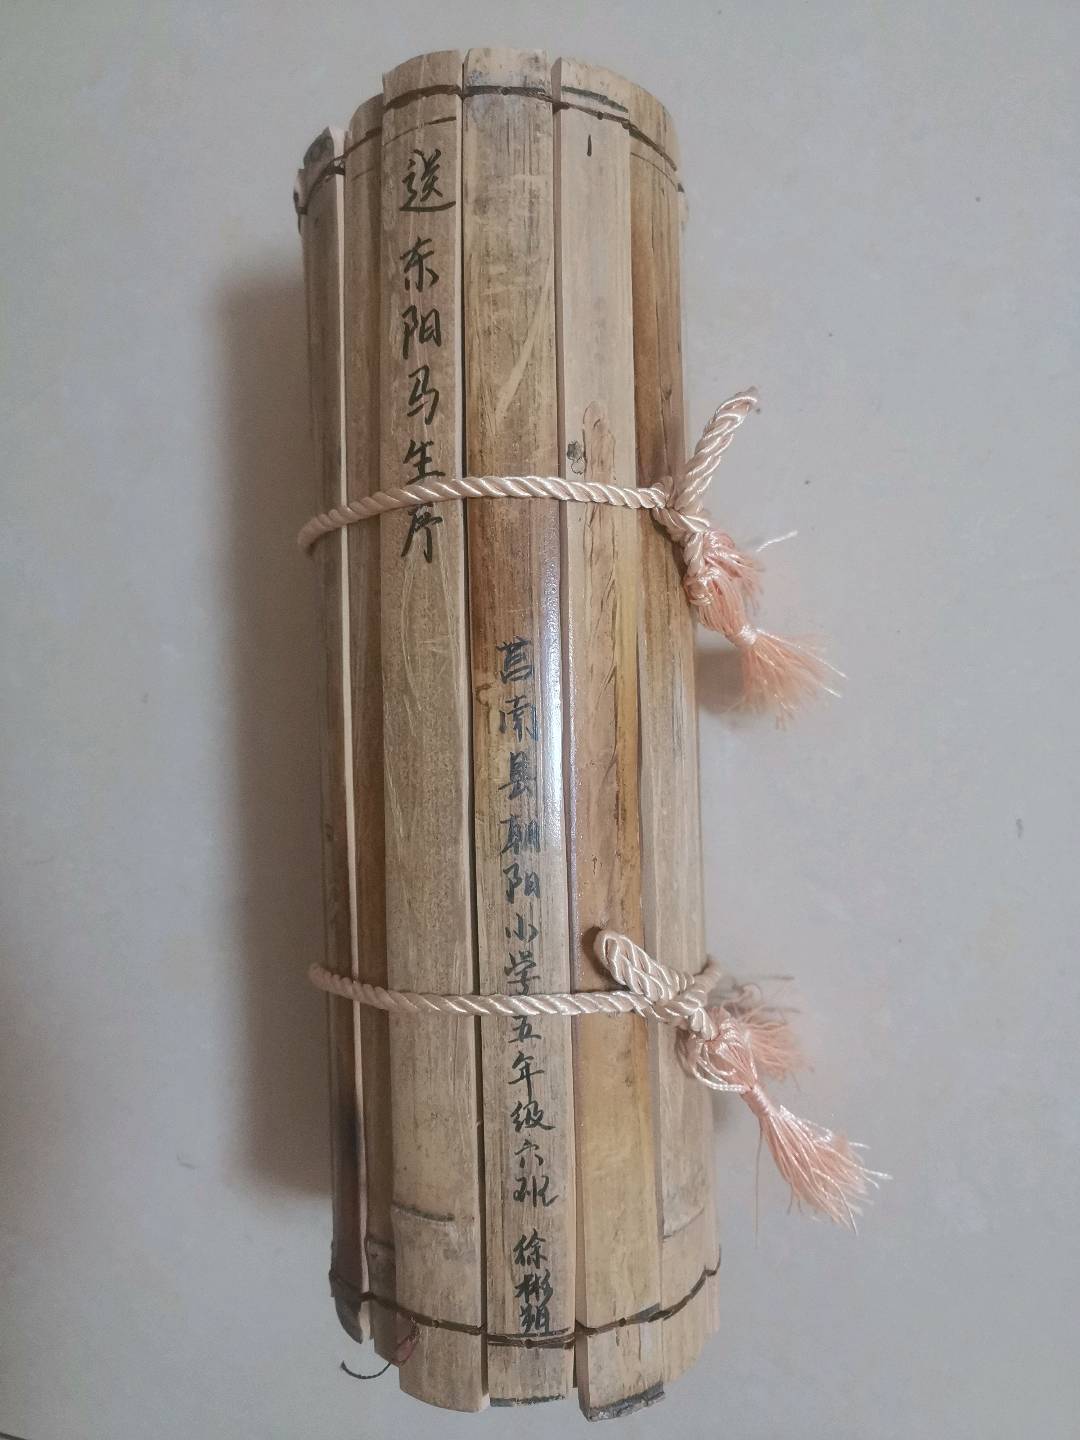 送东阳马生序
莒南县朝阳小学五年级六班 徐彬朔